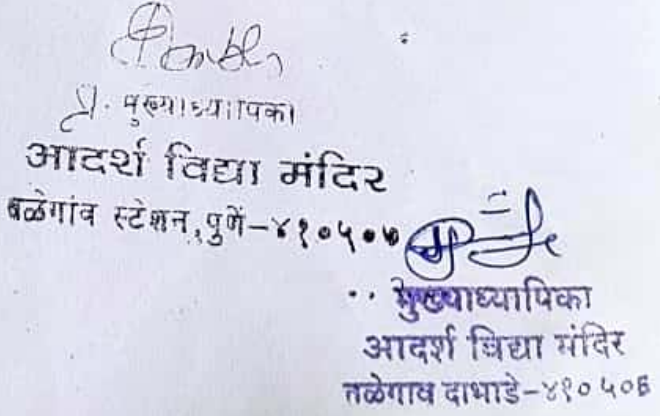 प्र. मुख्याध्यापिका
आदर्श विद्या मंदिर
तळेगांव स्टेशन, पुणें-४१०५०७
मुख्याध्यापिका
आदर्श विद्या मंदिर
तळेगाव दाभाडे-४१०५०६